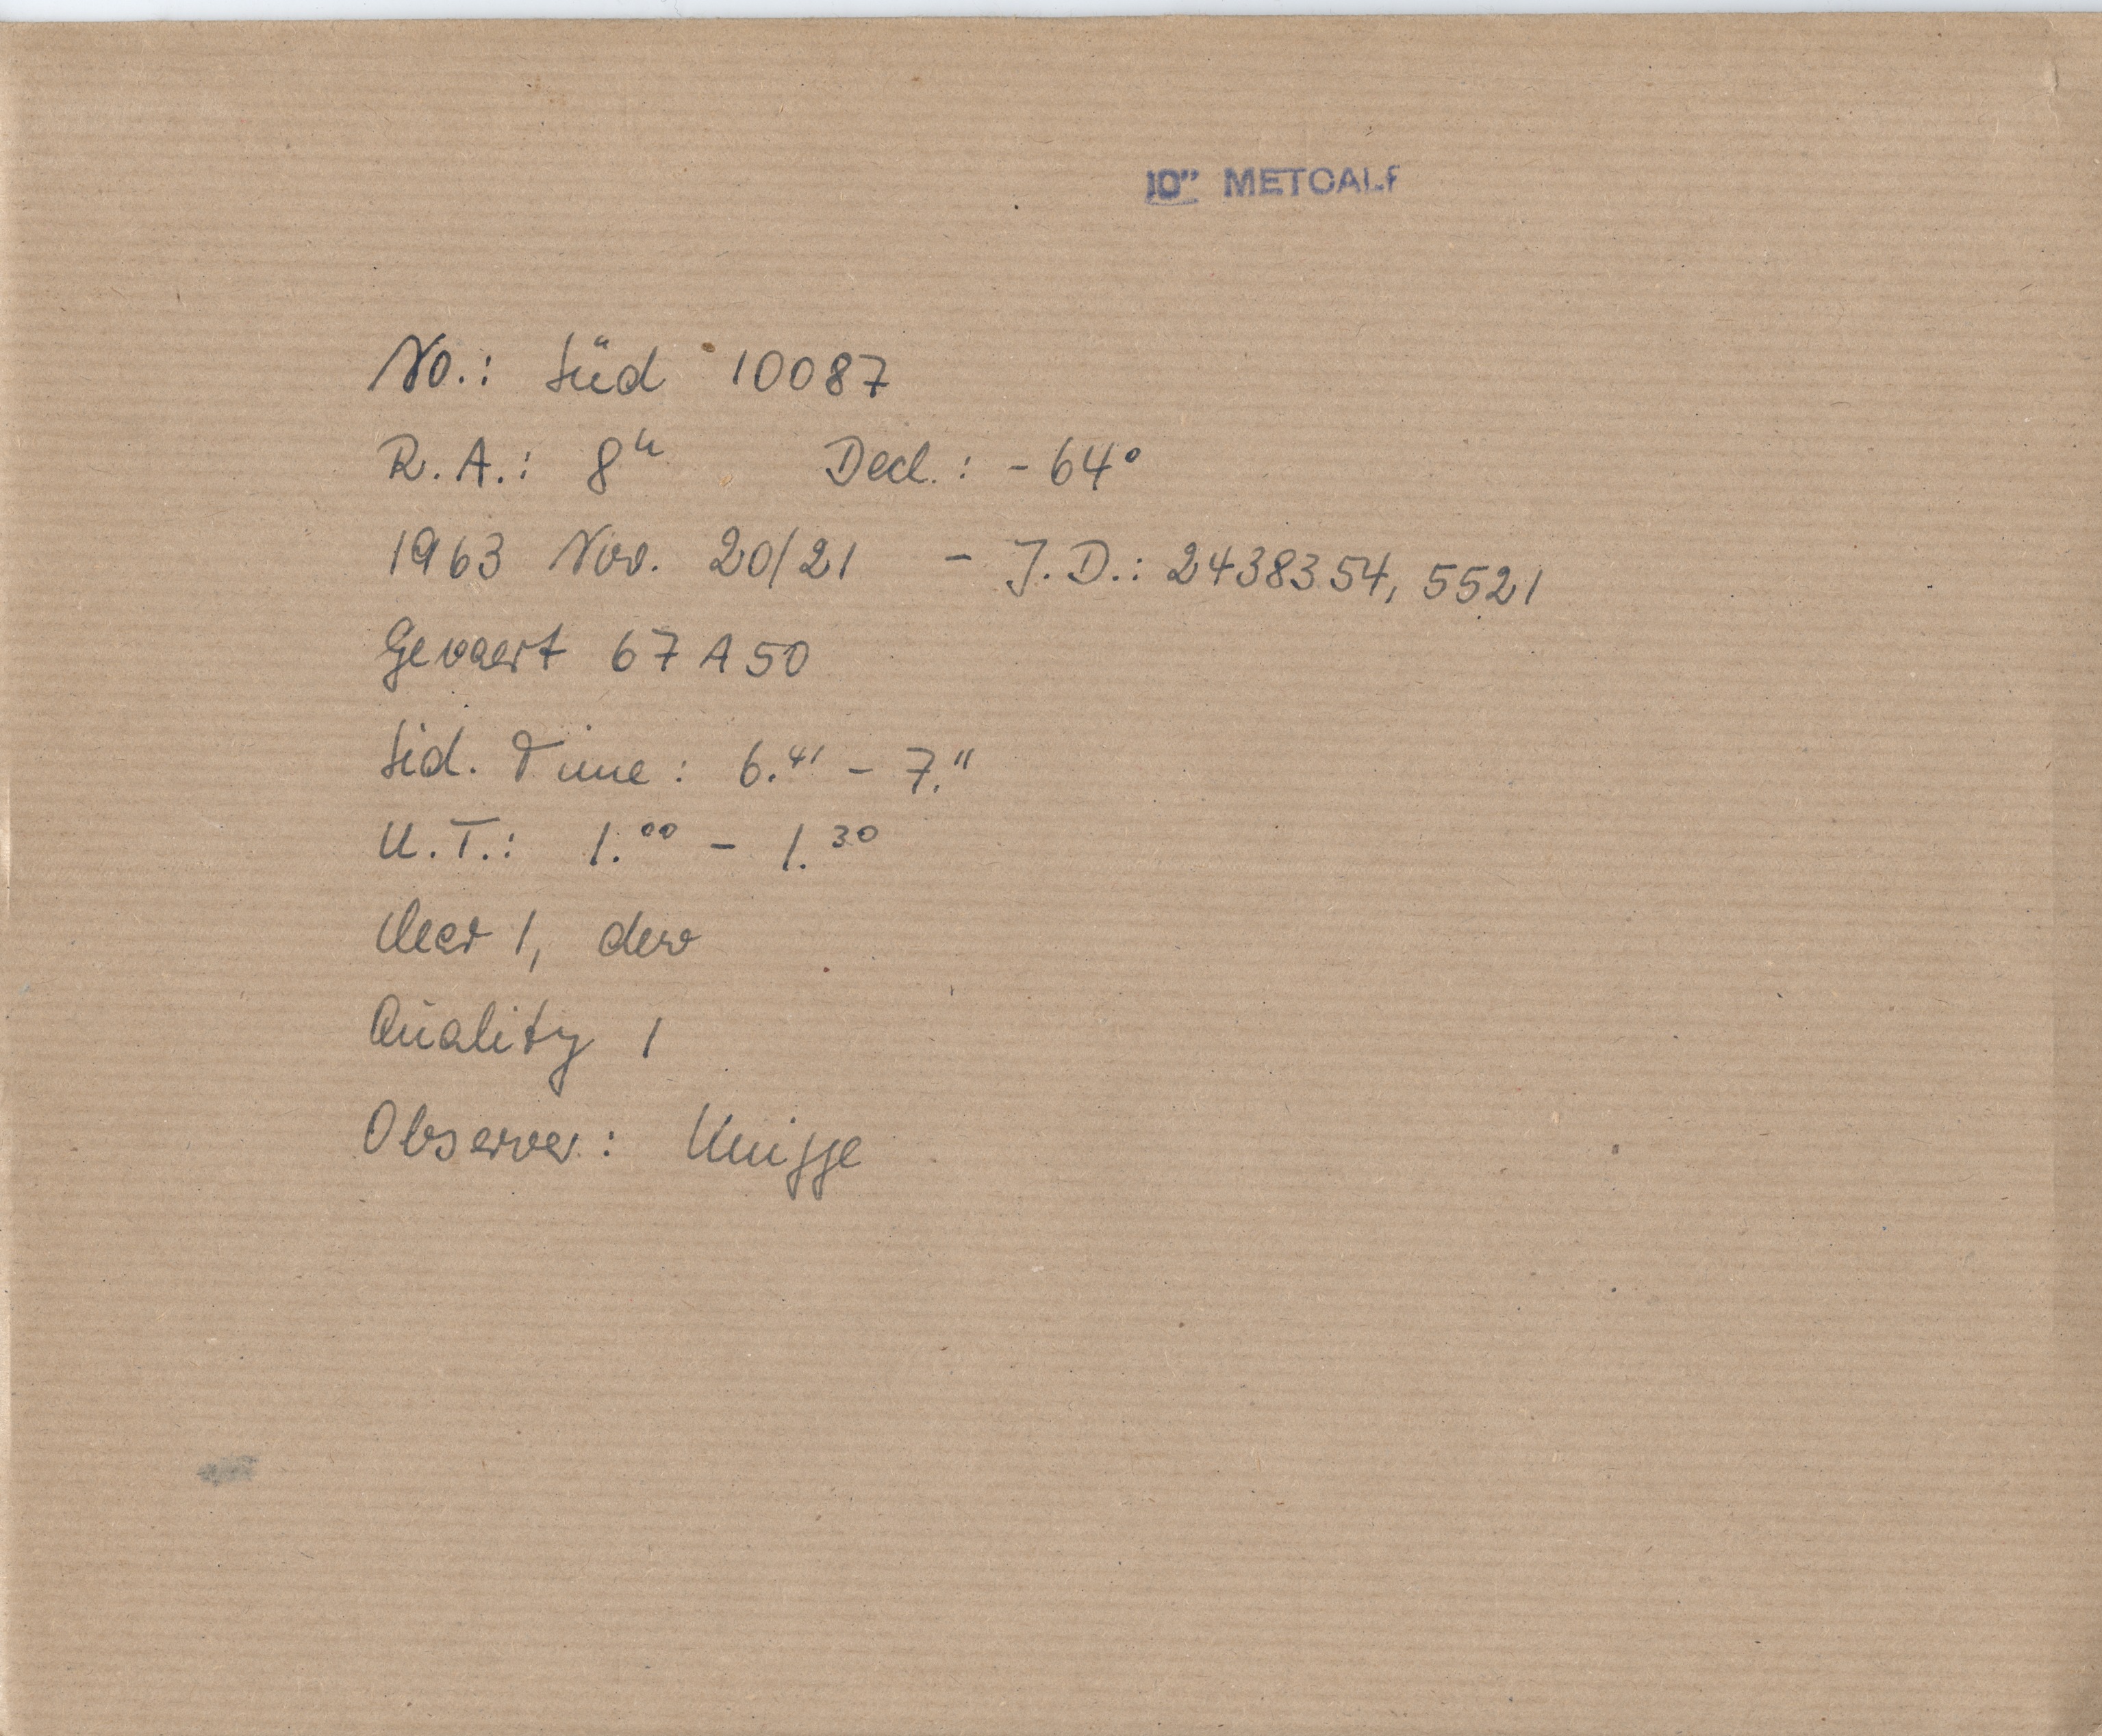 10" METCALF
No.: Süd 10087
R.A.: 8ʰ Decl.: -64°
1963 Nov. 20/21 - J.D.: 2438354,5521
Gevaert 67 A 50
Sid. Time: 6.⁴¹ - 7.¹¹
U.T.: 1.⁰⁰ - 1.³⁰
Clear 1, dew
Quality 1
Observer: Knigge